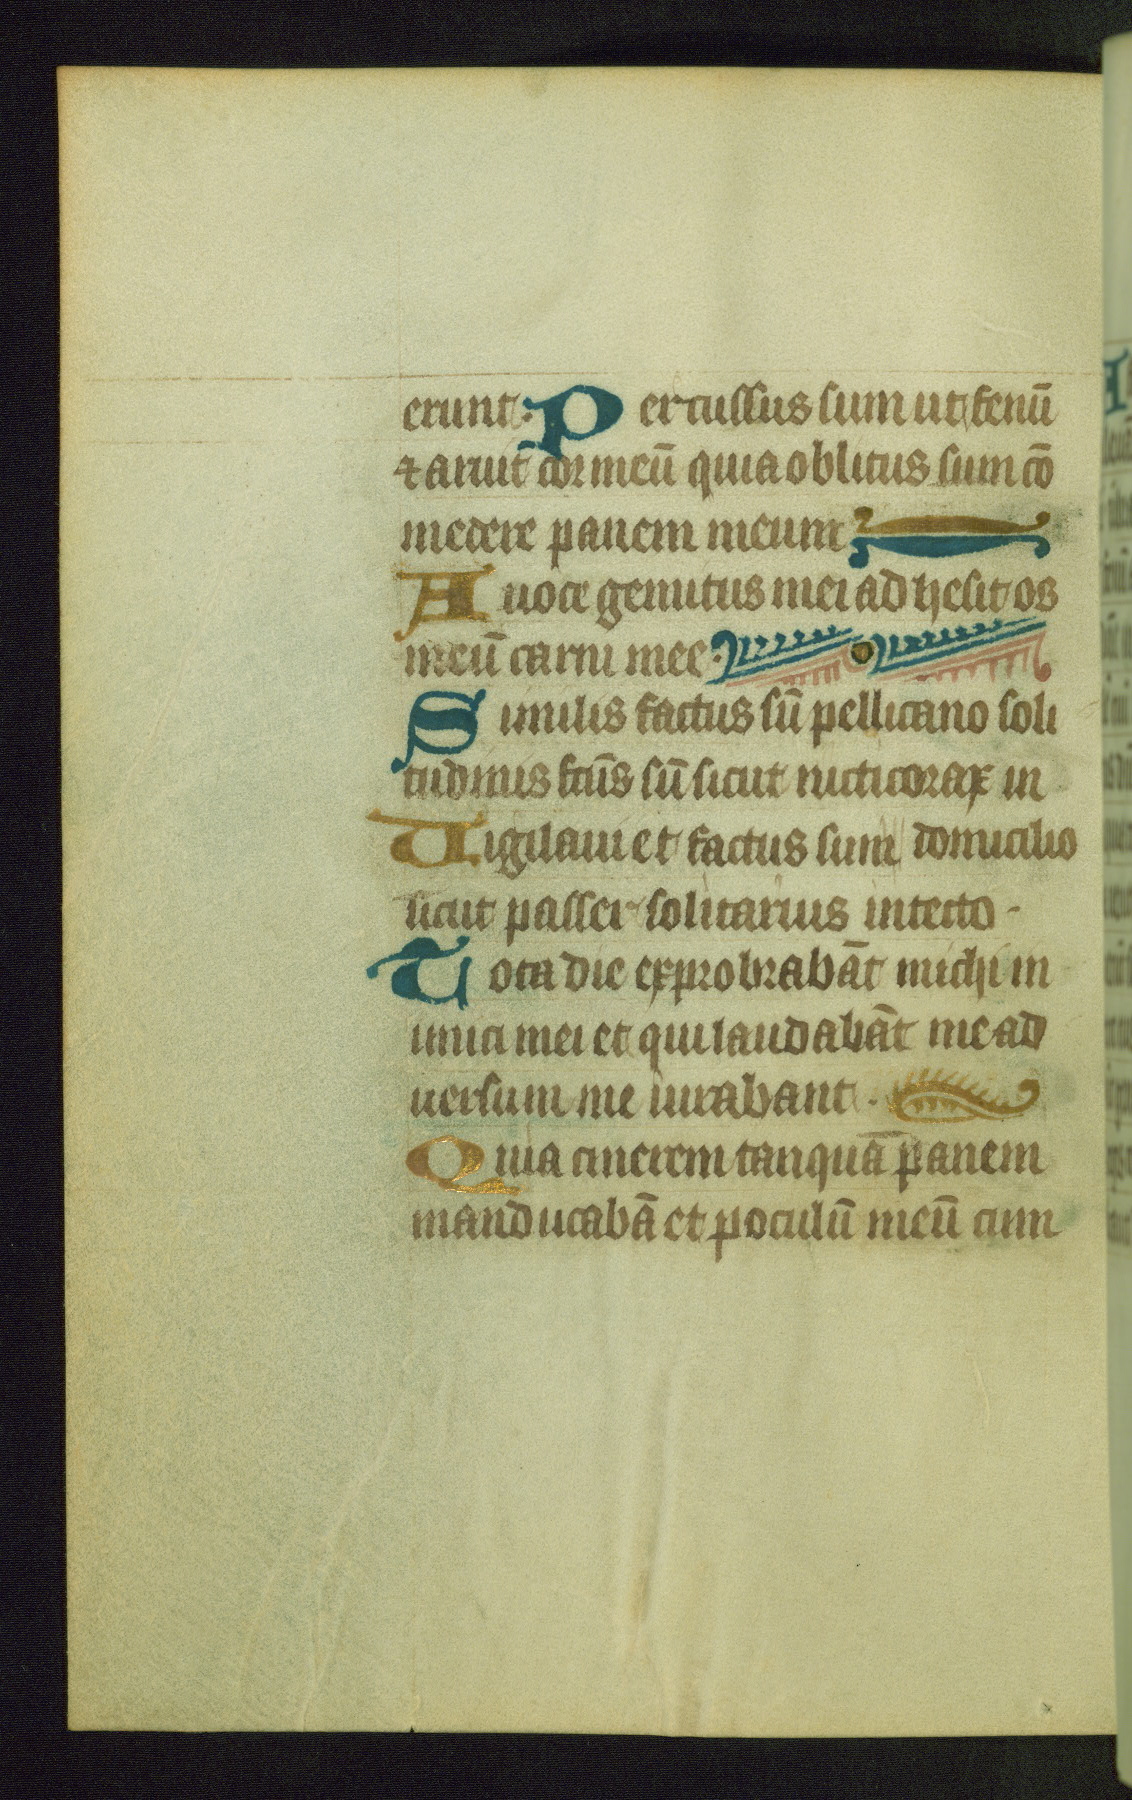 erunt. Percussus sum ut fenū
⁊ aruit cor meū quia oblitus sum cō
medere panem meum
A uoce gemitus mei adhesit os
meū carni mee
Similis factus sū pellicano soli
tudinis fcūs sū sicut nicticorax in
Uigilaui et factus sum domicilio
sicut passer solitarius in tecto -
Tota die exprobrabāt michi in
imici mei et qui laudabāt me ad
uersum me iurabant .
Quia cinerem tanquā panem
manducabā et poculū meū cum